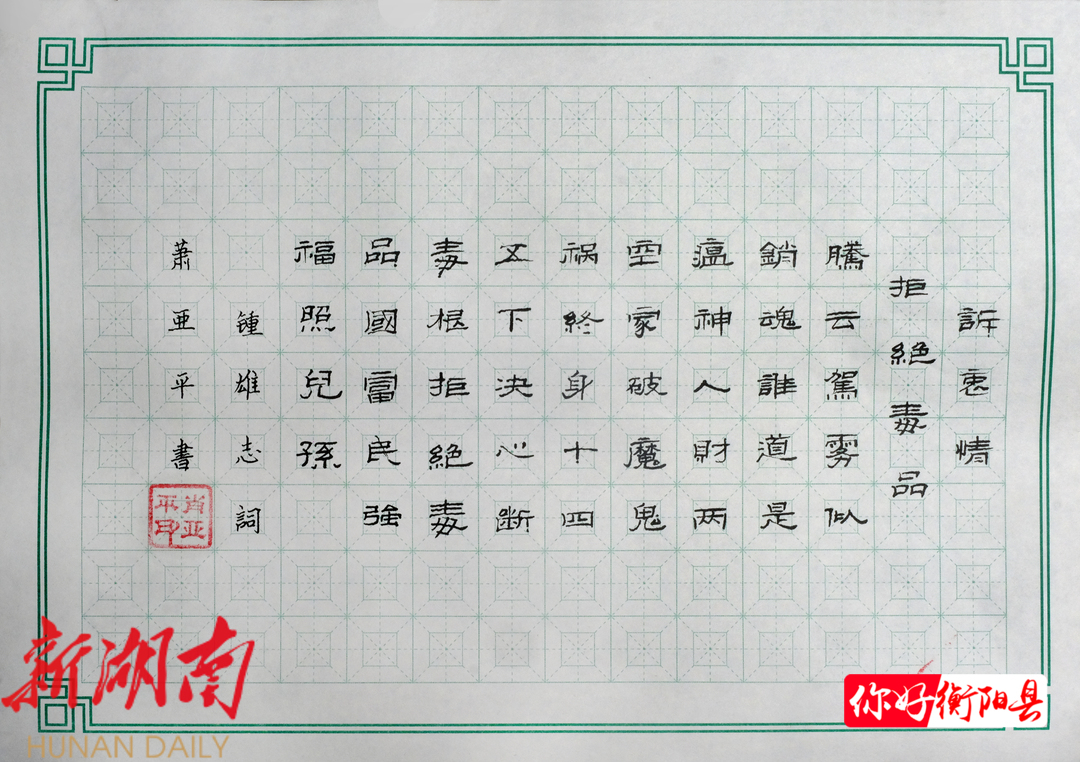 訴衷情
拒絶毒品
騰云駕霧似
銷魂誰道是
瘟神人財两
空家破魔鬼
祸終身十四
五下决心断
毒根拒絶毒
品國富民強
福照兒孫
鍾雄志詞
蕭亚平書
肖亚平印
新湖南
HUNAN DAILY
你好衡阳县